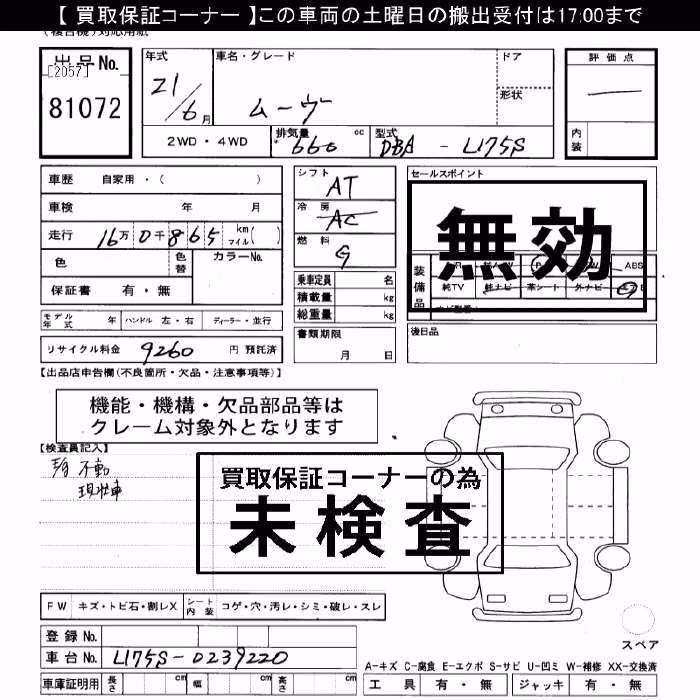 【 買取保証コーナー 】この車両の土曜日の搬出受付は17:00まで
(複合機)対応用紙
出品No.
[2057]
81072
年式
21/6月
車名・グレード
ムーヴ
ドア
形状
評価点
―
内装
2WD・4WD
排気量
660 cc
型式
DBA - L175S
車歴 自家用・( )
車検 年 月
走行 16万0千865 km マイル( )
色
色替
カラーNo.
保証書 有・無
シフト
AT
冷房
AC
燃料
G
乗車定員 名
積載量 kg
総重量 kg
セールスポイント
無効
装備品
ABS
純TV 純ナビ 革シート 外ナビ
モデル年式 年 ハンドル 左・右 ディーラー・並行
リサイクル料金 9260 円 預託済
書類期限
月 日
後日品
【出品店申告欄(不良箇所・欠品・注意事項等)】
機能・機構・欠品部品等は
クレーム対象外となります
【検査員記入】
不動
現状車
買取保証コーナーの為
未検査
FW キズ・トビ石・割レX シート内装 コゲ・穴・汚レ・シミ・破レ・スレ
スペア
登録No.
車台No. L175S-0239220
車庫証明用 長さ cm 幅 cm 高さ cm
A-キズ C-腐食 E-エクボ S-サビ U-凹ミ W-補修 XX-交換済
工具 有・無 ジャッキ 有・無